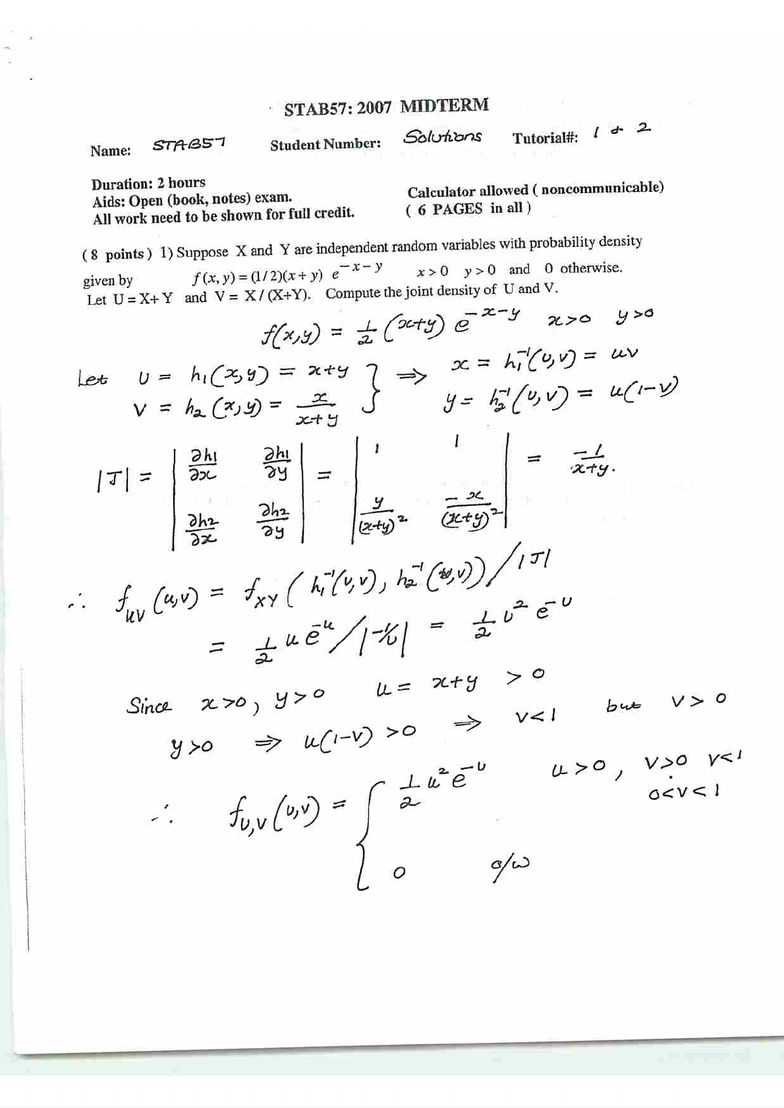 STAB57: 2007 MIDTERM
Name: STAB57 Student Number: Solutions Tutorial#: 1 & 2
Duration: 2 hours
Aids: Open (book, notes) exam. Calculator allowed ( noncommunicable)
All work need to be shown for full credit. ( 6 PAGES in all )
( 8 points ) 1) Suppose X and Y are independent random variables with probability density
given by f (x, y) = (1/2)(x + y) e^{-x-y} x > 0 y > 0 and 0 otherwise.
Let U = X+ Y and V = X / (X+Y). Compute the joint density of U and V.
f(x,y) = 1/2 (x+y) e^{-x-y} x>0 y>0
Let U = h₁(x,y) = x+y } ⇒ x = h₁⁻¹(u,v) = uv
V = h₂(x,y) = x/(x+y) y = h₂⁻¹(u,v) = u(1-v)
|J| = | ∂h1/∂x ∂h1/∂y | = | 1 1 | = -1/(x+y).
| ∂h2/∂x ∂h2/∂y | | y/(x+y)² -x/(x+y)² |
∴ f_{UV}(u,v) = f_{XY}(h₁⁻¹(u,v), h₂⁻¹(u,v))/|J|
= 1/2 u e^{-u}/|-1/u| = 1/2 u² e^{-u}
Since x>0, y>0 u = x+y > 0
y>0 ⇒ u(1-v) >0 ⇒ v<1 but v > 0
∴ f_{U,V}(u,v) = { 1/2 u² e^{-u} u>0, v>0 v<1
0<v<1
0 o/w